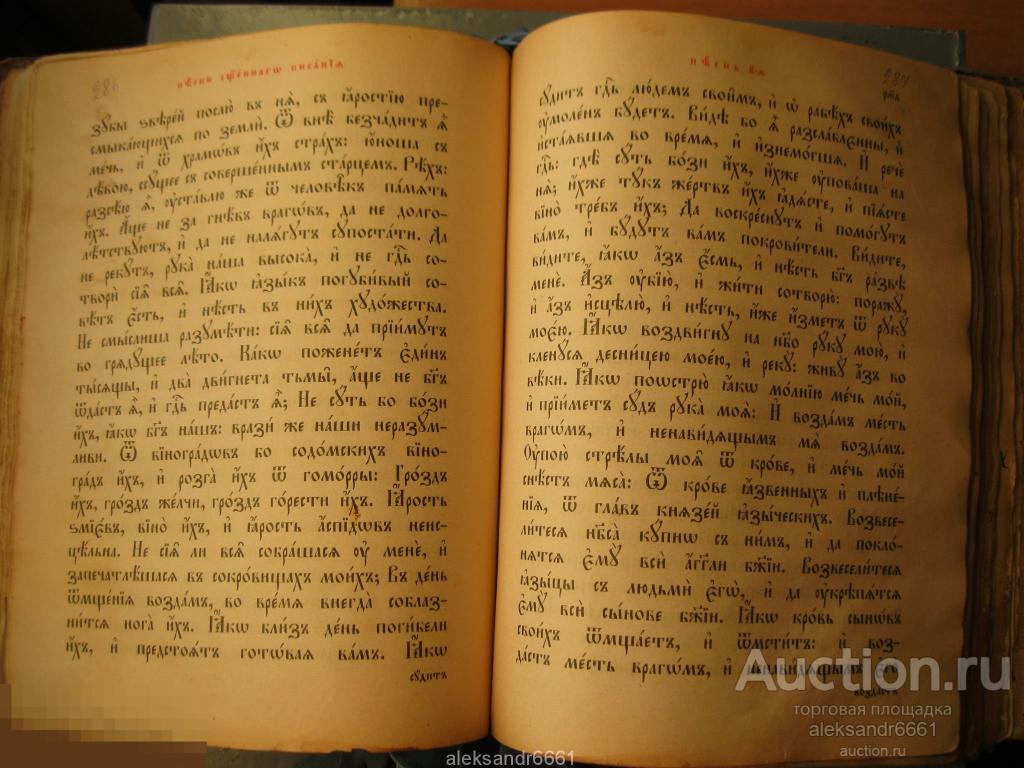 286
пѣсни сщ҃е́ннагѡ писа́нїѧ
зꙋ́бы ѕвѣре́й послю̀ въ нѧ̀, съ ꙗ҆́ростїю пре-
смыка́ющихсѧ по землѝ. Ѿ внѣ̀ безча́дитъ ѧ҆̀
ме́чь, и҆ ѿ хра́мѡвъ и҆́хъ стра́хъ: ю҆́ноша съ
дѣ́вою, ссꙋ́щее съ соверше́ннымъ ста́рцемъ. Рѣ́хъ:
разсѣ́ю ѧ҆̀, ѹ҆ста́влю же ѿ человѣ̑къ па́мѧть
и҆́хъ. А҆́ще не за гнѣ́въ врагѡ́въ, да не долго-
лѣ́тствꙋютъ, и҆ да не налѧ́гꙋтъ сꙋпоста́ти. Да
не рекꙋ́тъ, рꙋка̀ на́ша высока̀, и҆ не гдⷭ҇ь со-
творѝ сїѧ̑ всѧ̑. Ꙗ҆́кѡ ꙗ҆зы́къ погꙋби́вый со-
вѣ́тъ є҆́сть, и҆ нѣ́сть въ ни́хъ хꙋдо́жества.
Не смы́слиша разꙋмѣ́ти: сїѧ̑ всѧ̑ да прїи́мꙋтъ
во грѧдꙋ́щее лѣ́то. Ка́кѡ пожене́тъ є҆ди́нъ
ты́сѧщы, и҆ два̀ дви́гнета тьмы̑, а҆́ще не бг҃ъ
ѿда́стъ ѧ҆̀, и҆ гдⷭ҇ь преда́стъ ѧ҆̀; Не сꙋ́ть бо бо́зи
и҆́хъ, ꙗ҆́кѡ бг҃ъ на́шъ: вразѝ же на́ши неразꙋм-
ли́ви. Ѿ вїногра́дѡвъ бо содо́мскихъ вїно-
гра́дъ и҆́хъ, и҆ розга̀ и҆́хъ ѿ гомо́рры: Гро́здъ
и҆́хъ, гро́здъ же́лчи, гро́здъ го́рести и҆́хъ. Ꙗ҆́рость
ѕмїе́въ, вїно̀ и҆́хъ, и҆ ꙗ҆́рость а҆́спїдѡвъ неис-
цѣ́льна. Не сїѧ̑ ли всѧ̑ собра́шасѧ ѹ҆ менє̀, и҆
запечатлѣ́шасѧ въ сокро́вищахъ мои́хъ; Въ де́нь
ѿмще́нїѧ возда́мъ, во вре́мѧ внегда̀ соблаз-
ни́тсѧ нога̀ и҆́хъ. Ꙗ҆́кѡ бли́зъ де́нь поги́бели
и҆́хъ, и҆ предстоѧ́тъ готѡ́ваѧ ва́мъ. Ꙗ҆́кѡ
сꙋ́дитъ
287
пѣ́снь в҃ѧ
сꙋ́дитъ гдⷭ҇ь лю́демъ свои̑мъ, и҆ ѡ҆ рабѣ́хъ свои́хъ
ѹ҆моле́нъ бꙋ́детъ. Ви́дѣ бо ѧ҆̀ разсла́блєнны, и҆
и҆ста́ѧвшѧ во вре́мѧ, и҆ и҆знемо́гшѧ. И҆ речѐ
гдⷭ҇ь: гдѣ̀ сꙋ́ть бо́зи и҆́хъ, и҆́хже ѹ҆пова́ша на
нѧ̀; и҆́хже тꙋ́къ же́ртвъ и҆́хъ ꙗ҆дѧ́сте, и҆ пїѧ́сте
вїно̀ тре́бъ и҆́хъ; Да воскре́снꙋтъ и҆ помо́гꙋтъ
ва́мъ, и҆ бꙋ́дꙋтъ ва́мъ покрови́тели. Ви́дите,
ви́дите, ꙗ҆́кѡ а҆́зъ є҆́смь, и҆ нѣ́сть бг҃ъ ра́звѣ
менє̀. А҆́зъ ѹ҆бїю̀, и҆ жи́ти сотворю̀: поражꙋ̀,
и҆ а҆́зъ и҆сцѣлю̀, и҆ нѣ́сть, и҆́же и҆́зметъ ѿ рꙋкꙋ̀
мое́ю. Ꙗ҆́кѡ воздви́гнꙋ на нб҃о рꙋ́кꙋ мою̀, и҆
кленꙋ́сѧ десни́цею мое́ю, и҆ рекꙋ̀: живꙋ̀ а҆́зъ во
вѣ́ки. Ꙗ҆́кѡ поѡстрю̀ ꙗ҆́кѡ мо́лнїю ме́чь мо́й,
и҆ прїи́метъ сꙋ́дъ рꙋка̀ моѧ̀: И҆ возда́мъ ме́сть
врагѡ́мъ, и҆ ненави́дѧщымъ мѧ̀ возда́мъ.
Оу҆пою̀ стрѣ́лы моѧ̑ ѿ кро́ве, и҆ ме́чь мо́й
снѣ́сть мѧса̀: Ѿ кро́ве ꙗ҆́звенныхъ и҆ плѣне́-
нїѧ, ѿ гла́въ кнѧзе́й ꙗ҆зы́ческихъ. Возвесе-
ли́тесѧ нб҃са̀ кꙋ́пнѡ съ ни́мъ, и҆ да покло́-
нѧтсѧ є҆мꙋ̀ всѝ а҆́гг҃ли бж҃їи. Возвесели́тесѧ
ꙗ҆зы́цы съ людьмѝ є҆гѡ̀, и҆ да ѹ҆крѣпѧ́тсѧ
є҆мꙋ̀ всѝ сы́нове бж҃їи. Ꙗ҆́кѡ кро́вь сынѡ́въ
свои́хъ ѿмща́етъ, и҆ ѿмсти́тъ: и҆ воз-
да́стъ ме́сть врагѡ́мъ, и҆ ненави́дѧщымъ
возда́стъ
Auction.ru
торговая площадка
aleksandr6661
auction.ru
aleksandr6661